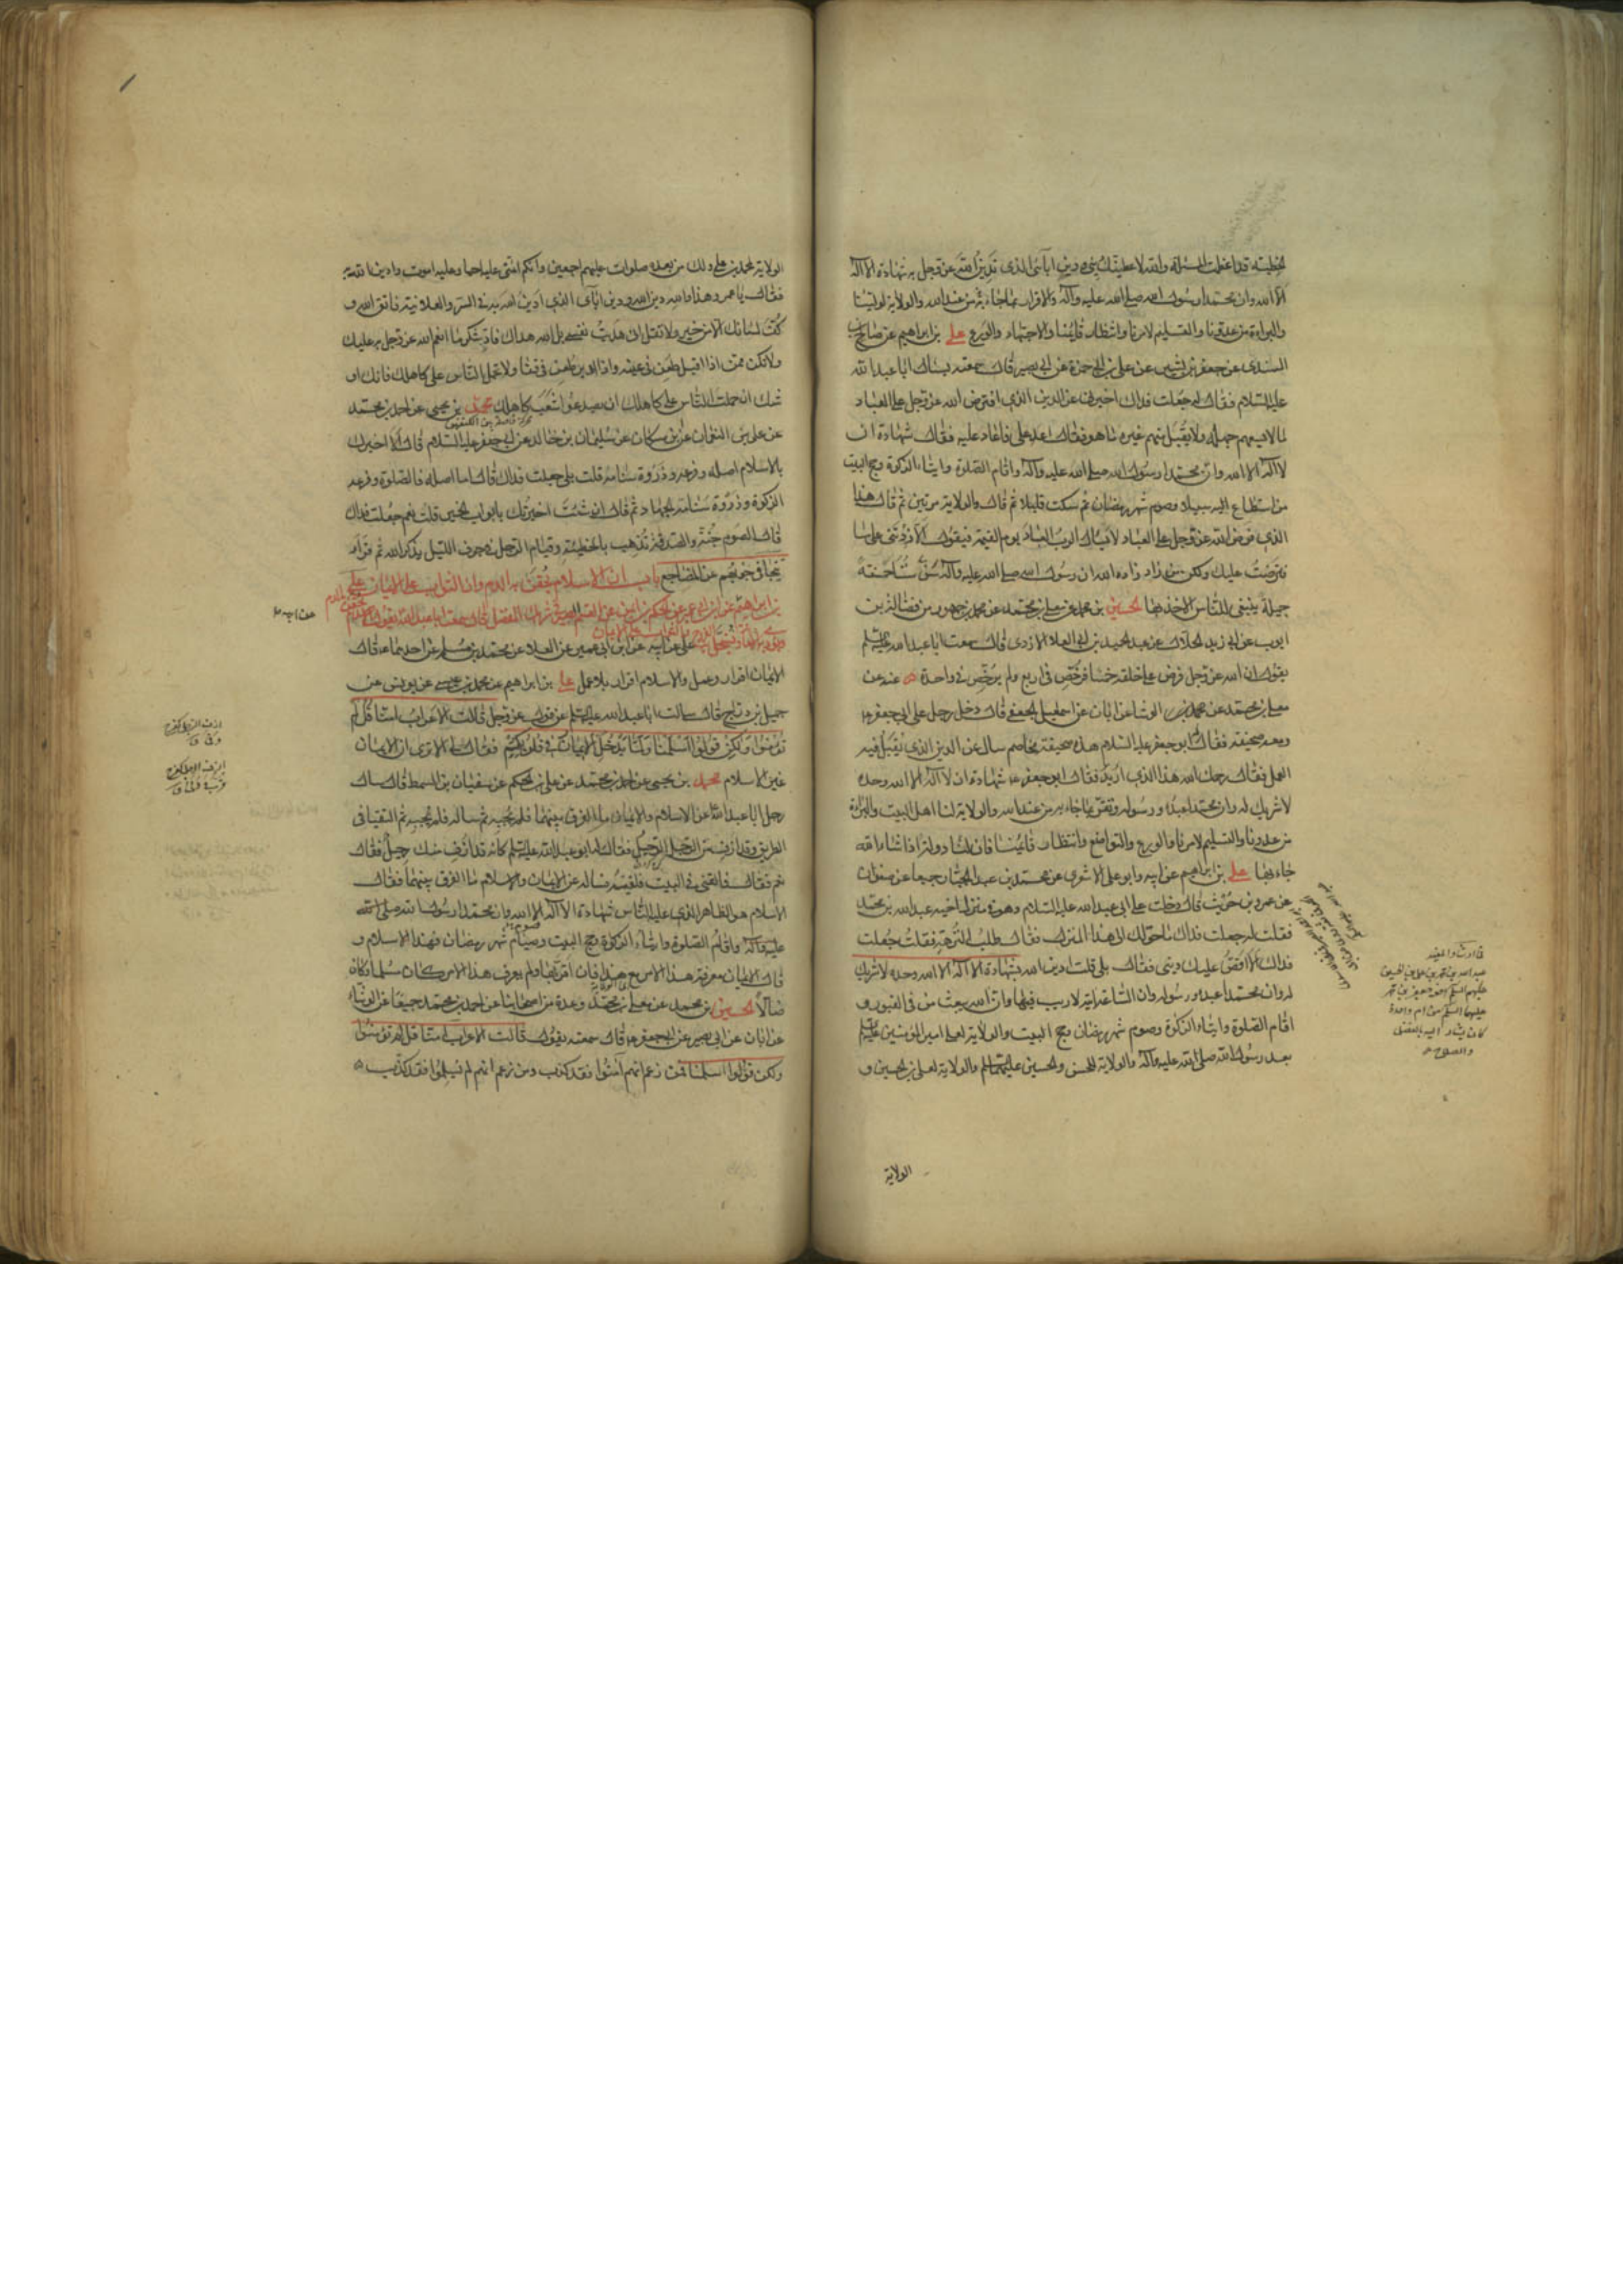 الخطبة فقد اعظمت المسئلة والله لاعطينك ديني ودين آبائي الذي ندين الله عز وجل به شهادة ان لا اله
الا الله وان محمدا رسول الله صلى الله عليه وآله والاقرار بما جاء به من عند الله والولاية لولينا
والبراءة من عدونا والتسليم لامرنا وانتظار قائمنا والاجتهاد والورع علي بن ابراهيم عن صالح بن
السندي عن جعفر بن بشير عن علي بن ابي حمزة عن ابي بصير قال سمعته يسال ابا عبد الله
عليه السلام فقال له جعلت فداك اخبرني عن الدين الذي افترض الله عز وجل على العباد
ما لا يسعهم جهله ولا يقبل منهم غيره ما هو فقال اعد علي فاعاد عليه فقال شهادة ان
لا اله الا الله وان محمدا رسول الله صلى الله عليه وآله واقام الصلوة وايتاء الزكوة وحج البيت
من استطاع اليه سبيلا وصوم شهر رمضان ثم سكت قليلا ثم قال والولاية مرتين ثم قال هذا
الذي فرض الله عز وجل على العباد لا يسال الرب العباد يوم القيمة فيقول الا زدتني على ما
افترضت عليك ولكن من زاد زاده الله ان رسول الله صلى الله عليه وآله سن سننا حسنة
جميلة ينبغي للناس الاخذ بها الحسين بن محمد عن معلى بن محمد عن محمد بن جمهور عن فضالة بن
ايوب عن ابي زيد الحلال عن عبد الحميد بن ابي العلاء الازدي قال سمعت ابا عبد الله عليه السلم
يقول ان الله عز وجل فرض على خلقه خمسا فرخص في اربع ولم يرخص في واحدة عنه عن
معلى بن محمد عن الوشا عن ابان عن اسمعيل الجعفي قال دخل رجل على ابي جعفر ع
ومعه صحيفة فقال له ابو جعفر عليه السلام هذه صحيفة مخاصم سال عن الدين الذي يقبل فيه
العمل فقال رحمك الله هذا الذي اريد فقال ابو جعفر ع شهادة ان لا اله الا الله وحده
لا شريك له وان محمدا عبده ورسوله وتقر بما جاء به من عند الله والولاية لنا اهل البيت والبراءة
من عدونا والتسليم لامرنا والورع والتواضع وانتظار قائمنا فان لنا دولة اذا شاء الله
جاء بها علي بن ابراهيم عن ابيه وابو علي الاشعري عن محمد بن عبد الجبار جميعا عن صفوان
عن عمرو بن حريث قال دخلت على ابي عبد الله عليه السلام وهو في منزل اخيه عبد الله بن محمد
فقلت له جعلت فداك ما حولك الى هذا المنزل فقال طلب النزهة فقلت جعلت
فداك الا اقص عليك ديني فقال بلى قلت ادين الله بشهادة ان لا اله الا الله وحده لا شريك
له وان محمدا عبده ورسوله وان الساعة آتية لا ريب فيها وان الله يبعث من في القبور و
اقام الصلوة وايتاء الزكوة وصوم شهر رمضان وحج البيت والولاية لعلي امير المؤمنين عليه السلم
بعد رسول الله صلى الله عليه وآله والولاية للحسن والحسين عليهما السلم والولاية لعلي بن الحسين و
الولاية
الولاية لمحمد بن علي ولك من بعده صلوات عليهم اجمعين وانكم ائمتي عليه احيا وعليه اموت وادين الله به
فقال يا عمرو هذا والله دين الله ودين آبائي الذي ادين الله به في السر والعلانية فاتق الله و
كف لسانك الا من خير ولا تقل اني هديت نفسي بل الله هداك فاد شكر ما انعم الله عز وجل به عليك
ولا تكن ممن اذا اقبل طعن في عينه واذا ادبر طعن في قفاه ولا تحمل الناس على كاهلك فانك او
شك ان حملت الناس على كاهلك ان يصدعوا شعب كاهلك محمد بن يحيى عن احمد بن محمد
عن علي بن النعمان عن ابن مسكان عن سليمان بن خالد عن ابي جعفر عليه السلام قال الا اخبرك
بالاسلام اصله وفرعه وذروة سنامه قلت بلى جعلت فداك قال اما اصله فالصلوة وفرعه
الزكوة وذروة سنامه الجهاد ثم قال ان شئت اخبرتك بابواب الخير قلت نعم جعلت فداك
قال الصوم جنة والصدقة تذهب بالخطيئة وقيام الرجل في جوف الليل يذكر الله ثم قرأ
تتجافى جنوبهم عن المضاجع باب ان الاسلام يحقن به الدم وان الثواب على الايمان علي
بن ابراهيم عن ابن ابي عمير عن الحكم بن ايمن عن القاسم الصيرفي شريك المفضل قال سمعت ابا عبد الله يقول الاسلام يحقن به الدم
علي عن ابيه عن ابن ابي عمير عن العلاء عن محمد بن مسلم عن احدهما ع قال
الايمان اقرار وعمل والاسلام اقرار بلا عمل علي بن ابراهيم عن محمد بن عيسى عن يونس عن
جميل بن دراج قال سالت ابا عبد الله عليه السلم عن قول الله عز وجل قالت الاعراب آمنا قل لم
تؤمنوا ولكن قولوا اسلمنا ولما يدخل الايمان في قلوبكم فقال لي الا ترى ان الايمان
غير الاسلام محمد بن يحيى عن احمد بن محمد عن علي بن الحكم عن سفيان بن السمط قال سال
رجل ابا عبد الله ع عن الاسلام والايمان ما الفرق بينهما فلم يجبه ثم ساله فلم يجبه ثم التقيا في
الطريق وقد ازف من الرجل الرحيل فقال له ابو عبد الله عليه السلم كانه قد ازف منك رحيل فقال
نعم فقال فالقني في البيت فلقيه فساله عن الايمان والاسلام ما الفرق بينهما فقال
الاسلام هو الظاهر الذي عليه الناس شهادة ان لا اله الا الله وان محمدا رسول الله صلى الله
عليه وآله واقام الصلوة وايتاء الزكوة وحج البيت وصيام شهر رمضان فهذا الاسلام و
قال الايمان معرفة هذا الامر مع هذا فان اقر بها ولم يعرف هذا الامر كان مسلما وكان
ضالا الحسين بن محمد عن معلى بن محمد وعدة من اصحابنا عن احمد بن محمد جميعا عن الوشاء
عن ابان عن ابي بصير عن ابي جعفر ع قال سمعته يقول قالت الاعراب آمنا قل لم تؤمنوا
ولكن قولوا اسلمنا فمن زعم انهم آمنوا فقد كذب ومن زعم انهم لم يسلموا فقد كذب